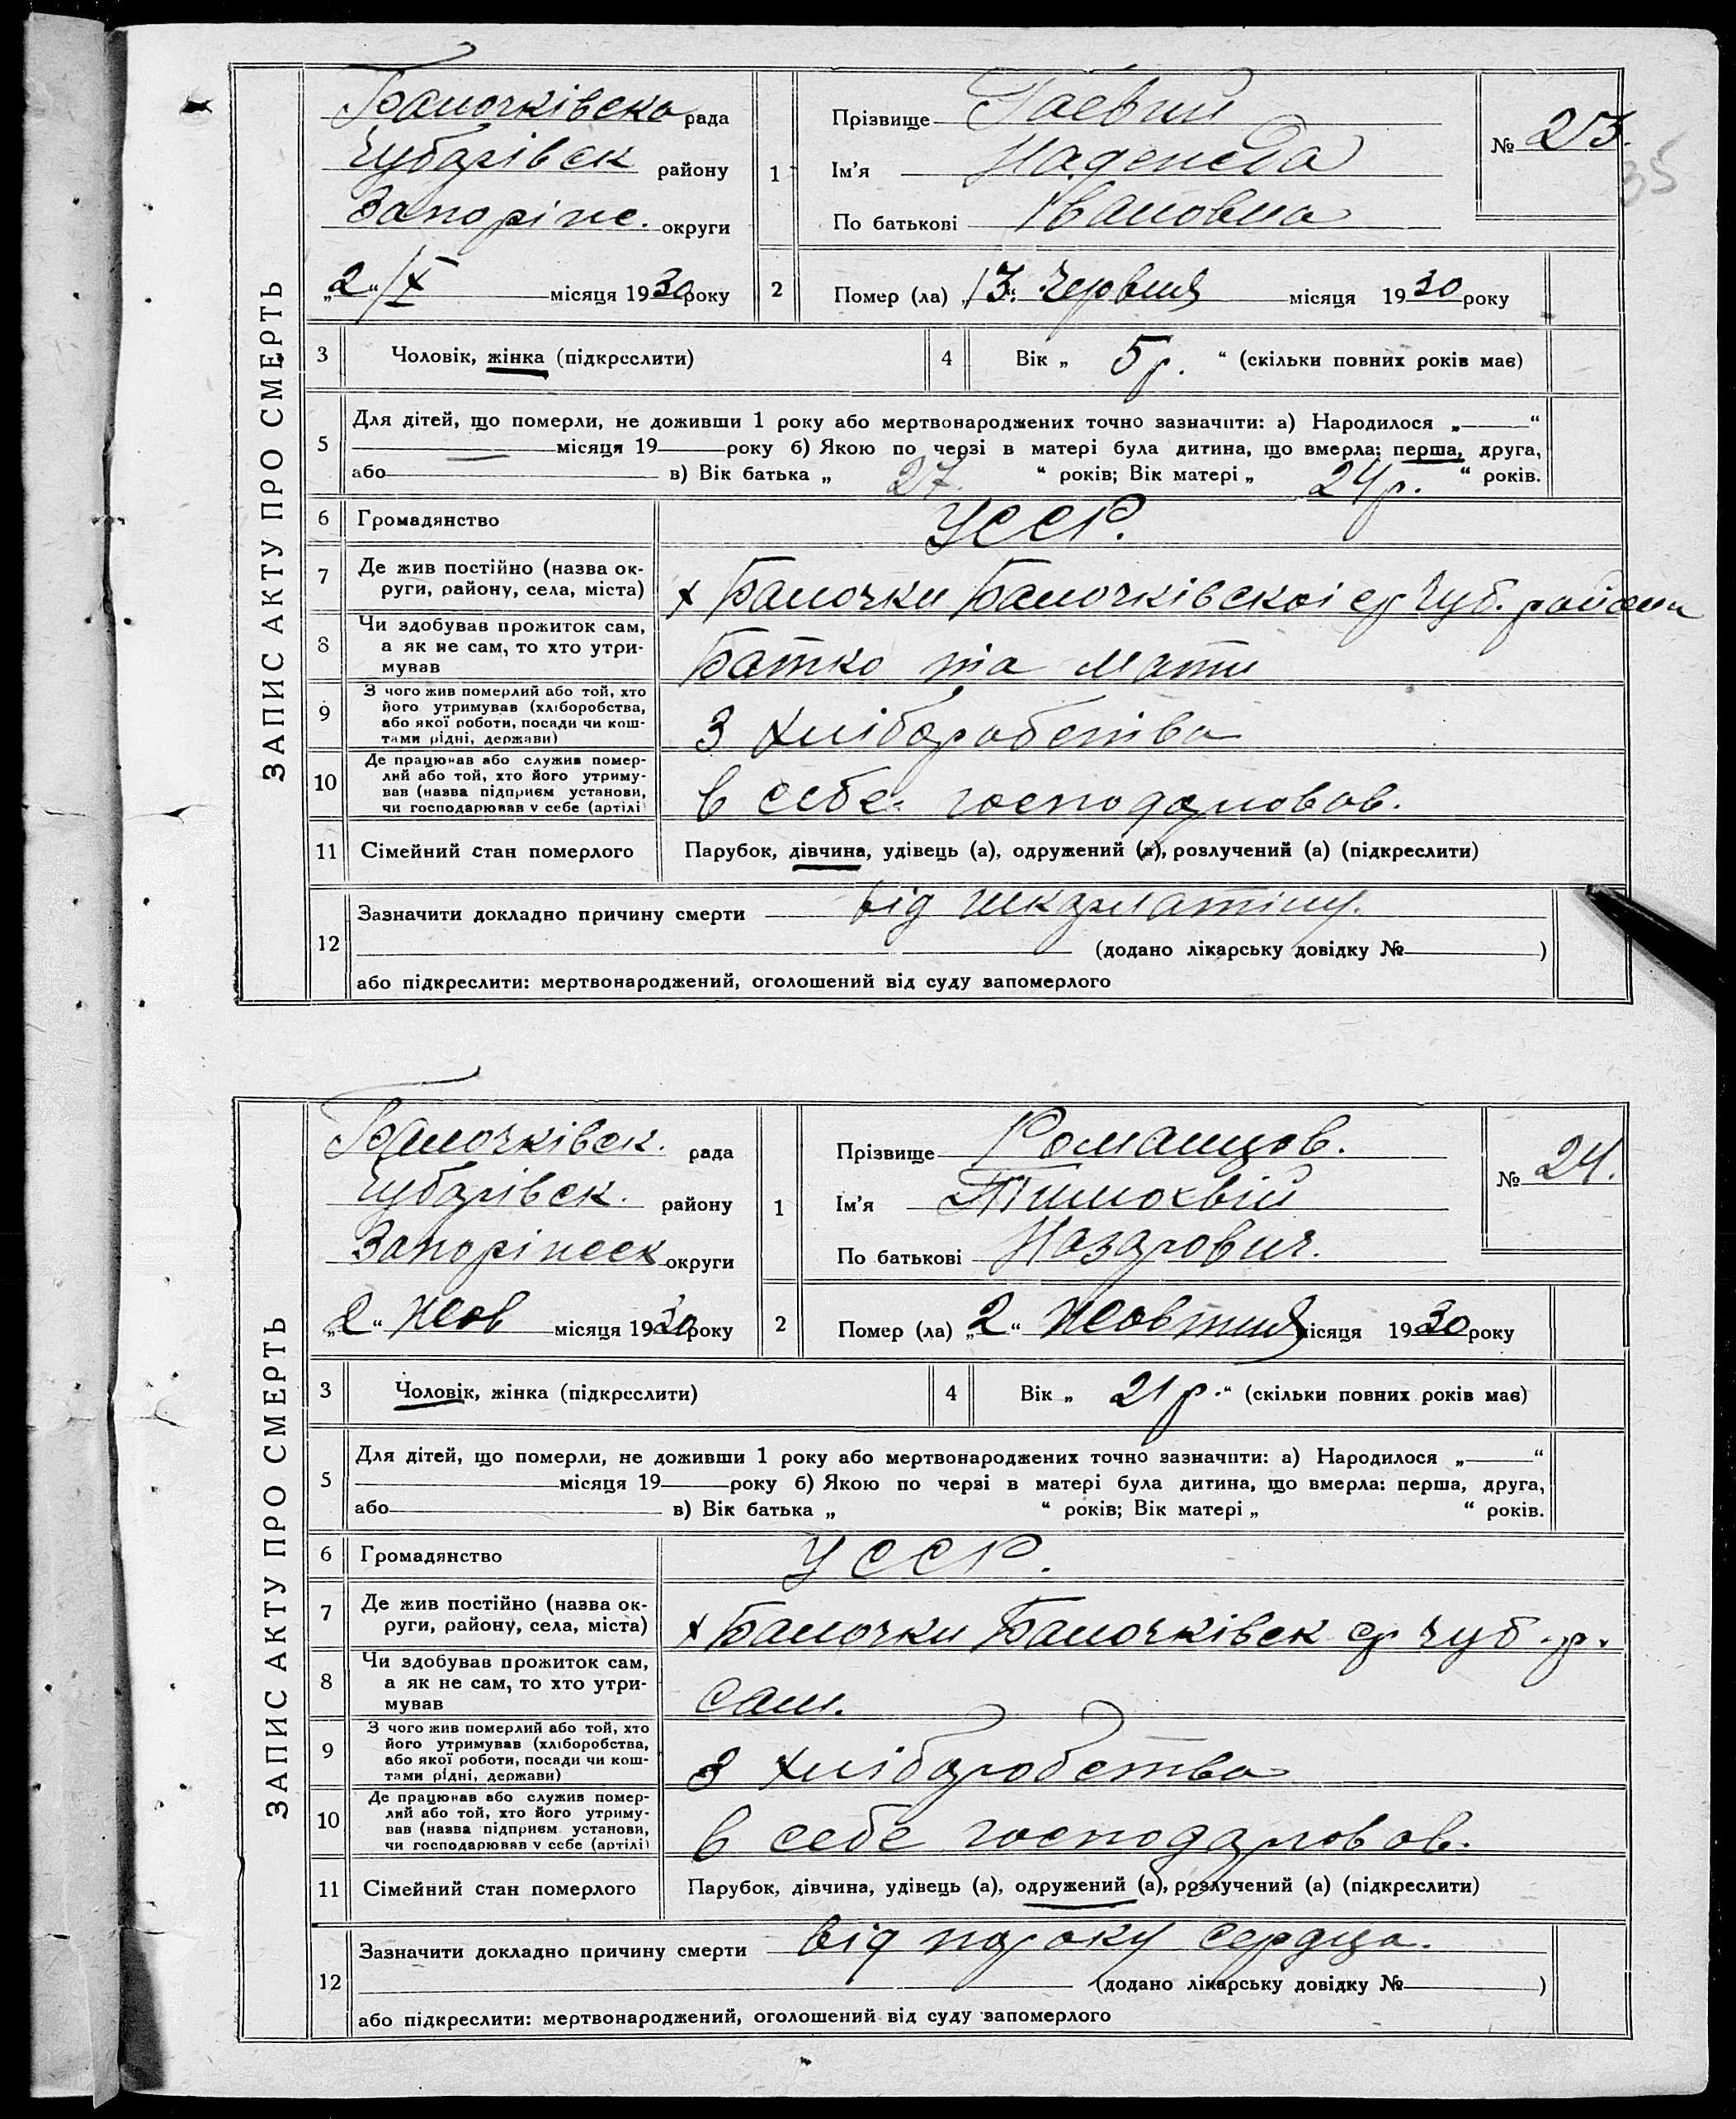 ЗАПИС АКТУ ПРО СМЕРТЬ
Балочківська рада
Чубарівськ району
Запоріжс. округи
„2“/X місяця 1930 року
1
Прізвище Гаевий
Ім'я Надежда
По батькові Івановна
№ 23.
35
2 Помер (ла) „13“ Червня місяця 1930 року
3 Чоловік, жінка (підкреслити)
4 Вік „ 5 р. “ (скільки повних років має)
5 Для дітей, що померли, не доживши 1 року або мертвонароджених точно зазначити: а) Народилося „ “
місяця 19 року б) Якою по черзі в матері була дитина, що вмерла: перша, друга,
або в) Вік батька „ 27. “ років; Вік матері „ 24 р. “ років.
6 Громадянство УССР.
7 Де жив постійно (назва округи, району, села, міста) х Балочки Балочківскоі ср Чуб. района
8 Чи здобував прожиток сам,
а як не сам, то хто утримував Батко та мати
9 З чого жив померлий або той, хто
його утримував (хліборобства,
або якої роботи, посади чи коштами рідні, держави) З хліборобства
10 Де працював або служив померлий або той, хто його утримував (назва підприєм установи,
чи господарював у себе (артілі) в себе господарював.
11 Сімейний стан померлого Парубок, дівчина, удівець (а), одружений (а), розлучений (а) (підкреслити)
12 Зазначити докладно причину смерти від шкарлатіни.
(додано лікарську довідку № )
або підкреслити: мертвонароджений, оголошений від суду запомерлого
ЗАПИС АКТУ ПРО СМЕРТЬ
Балочківськ. рада
Чубарівськ. району
Запоріжськ округи
„2“ Жов місяця 1930 року
1
Прізвище Романцов.
Ім'я Тимохвій
По батькові Назарович.
№ 24.
2 Помер (ла) „2“ Жовтня місяця 1930 року
3 Чоловік, жінка (підкреслити)
4 Вік „ 21 р. “ (скільки повних років має)
5 Для дітей, що померли, не доживши 1 року або мертвонароджених точно зазначити: а) Народилося „ “
місяця 19 року б) Якою по черзі в матері була дитина, що вмерла: перша, друга,
або в) Вік батька „ “ років; Вік матері „ “ років.
6 Громадянство УССР.
7 Де жив постійно (назва округи, району, села, міста) х Балочки Балочківськ ср Чуб. р.
8 Чи здобував прожиток сам,
а як не сам, то хто утримував сам.
9 З чого жив померлий або той, хто
його утримував (хліборобства,
або якої роботи, посади чи коштами рідні, держави) З хліборобства
10 Де працював або служив померлий або той, хто його утримував (назва підприєм установи,
чи господарював у себе (артілі) в себе господарював.
11 Сімейний стан померлого Парубок, дівчина, удівець (а), одружений (а), розлучений (а) (підкреслити)
12 Зазначити докладно причину смерти від пороку сердца.
(додано лікарську довідку № )
або підкреслити: мертвонароджений, оголошений від суду запомерлого